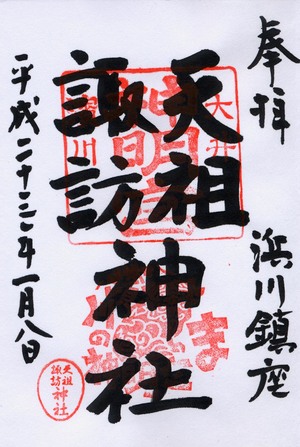 奉拝
浜川鎮座
天祖
諏訪
神社
平成二十三年一月八日
天祖
諏訪神社